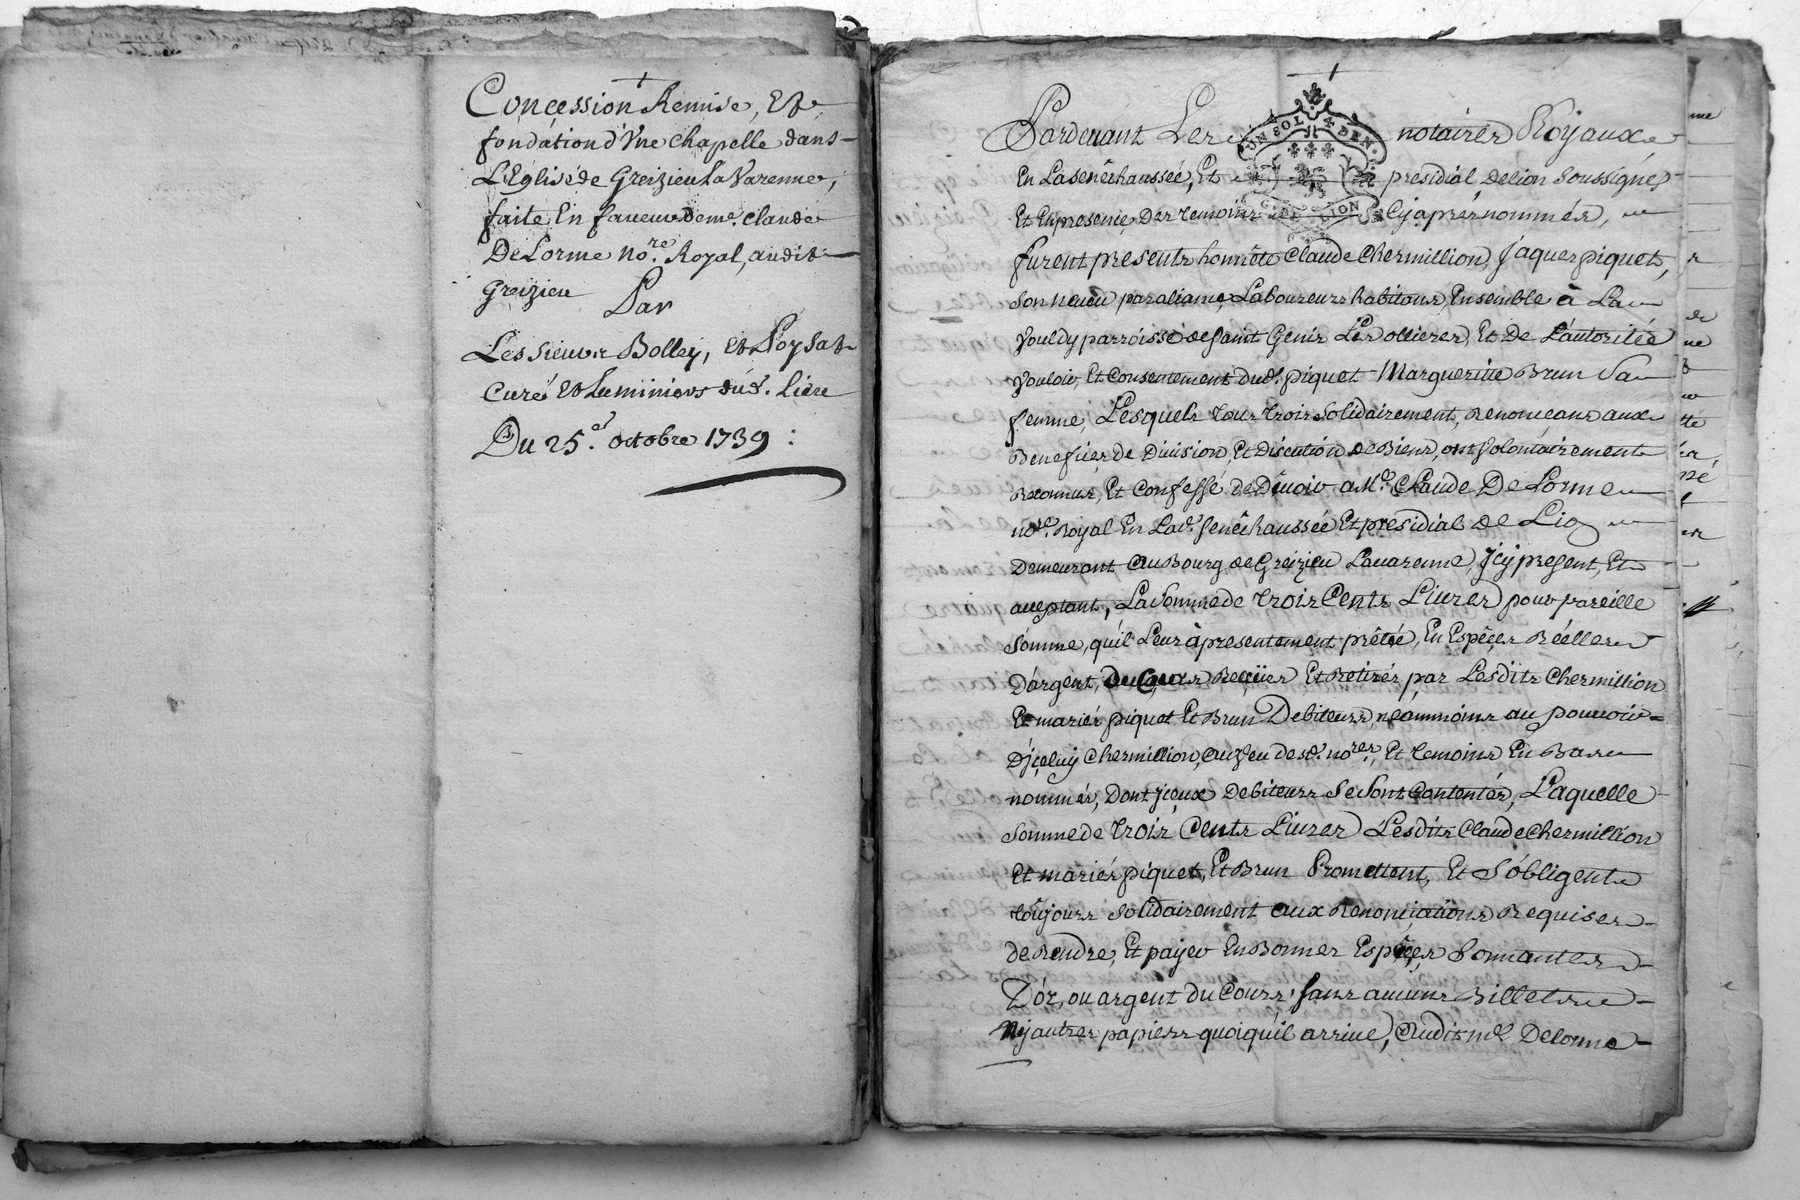 Concession Remise, Et
fondation d'Vne chapelle dans
L'Eglise de Greizieu La Varenne,
faite En faueur de me. claude
De Lorme no.re Royal, audit
Greizieu
Par
Les sieurs Bolley, et Poysat
Curé et Luminiers dud. Liere
Du 25.e octobre 1739 :
Pardeuant Les notaires Royaux
UN SOL 4 DEN.
En La senêchaussée, Et presidial De lion soussignés,
Et En presence Des temoins Cy après nommés,
G. DE LION
furent presents honnête Claude Chermillion, Jaques piquet,
son neueu par aliance, Laboureurs habitans Ensemble à La
Vouldy parroisse de saint Genis Les ollieres, Et De L'autorité
Vouloir, Et Consentement dud. piquet Margueritte Brun Sa
femme, Lesquels tous trois solidairement, Renonceans aux
Benefices de Diuision, Et Discution de Biens, ont Volontairement
Reconnus, Et Confessé de Deuoir a Me. Claude De Lorme
no.re Royal En Lad. senêchaussée Et presidial de Lion
Demeurant au Bourg de Greizieu Lauarenne, Jcy present, Et
aceptant, La somme de trois Cents Liures pour pareille
somme, quil Leur à presentement prêtée, En Espêces Réelles
D'argent, du Cours Reçües Et Retirés par Lesdits Chermillion
Et mariés piquet Et Brun Debiteurs, néammoins au pouuoir
D'jceluy Chermillion, au Veu desd. no.res, Et temoins En Bas
nommés, Dont jceux Debiteurs se sont Contentés, Laquelle
somme de trois Cents Liures Lesdits Claude Chermillion
Et mariés piquet, Et Brun Promettent, Et S'obligent
toûjours solidairement aux Renonciations Requises
de Rendre, Et payer En Bonnes Espêces sonnantes
D'or, ou argent du Cours, sans aucuns Billets
Ny autres papiers quoiqu'il arriue, Audit me Delorme